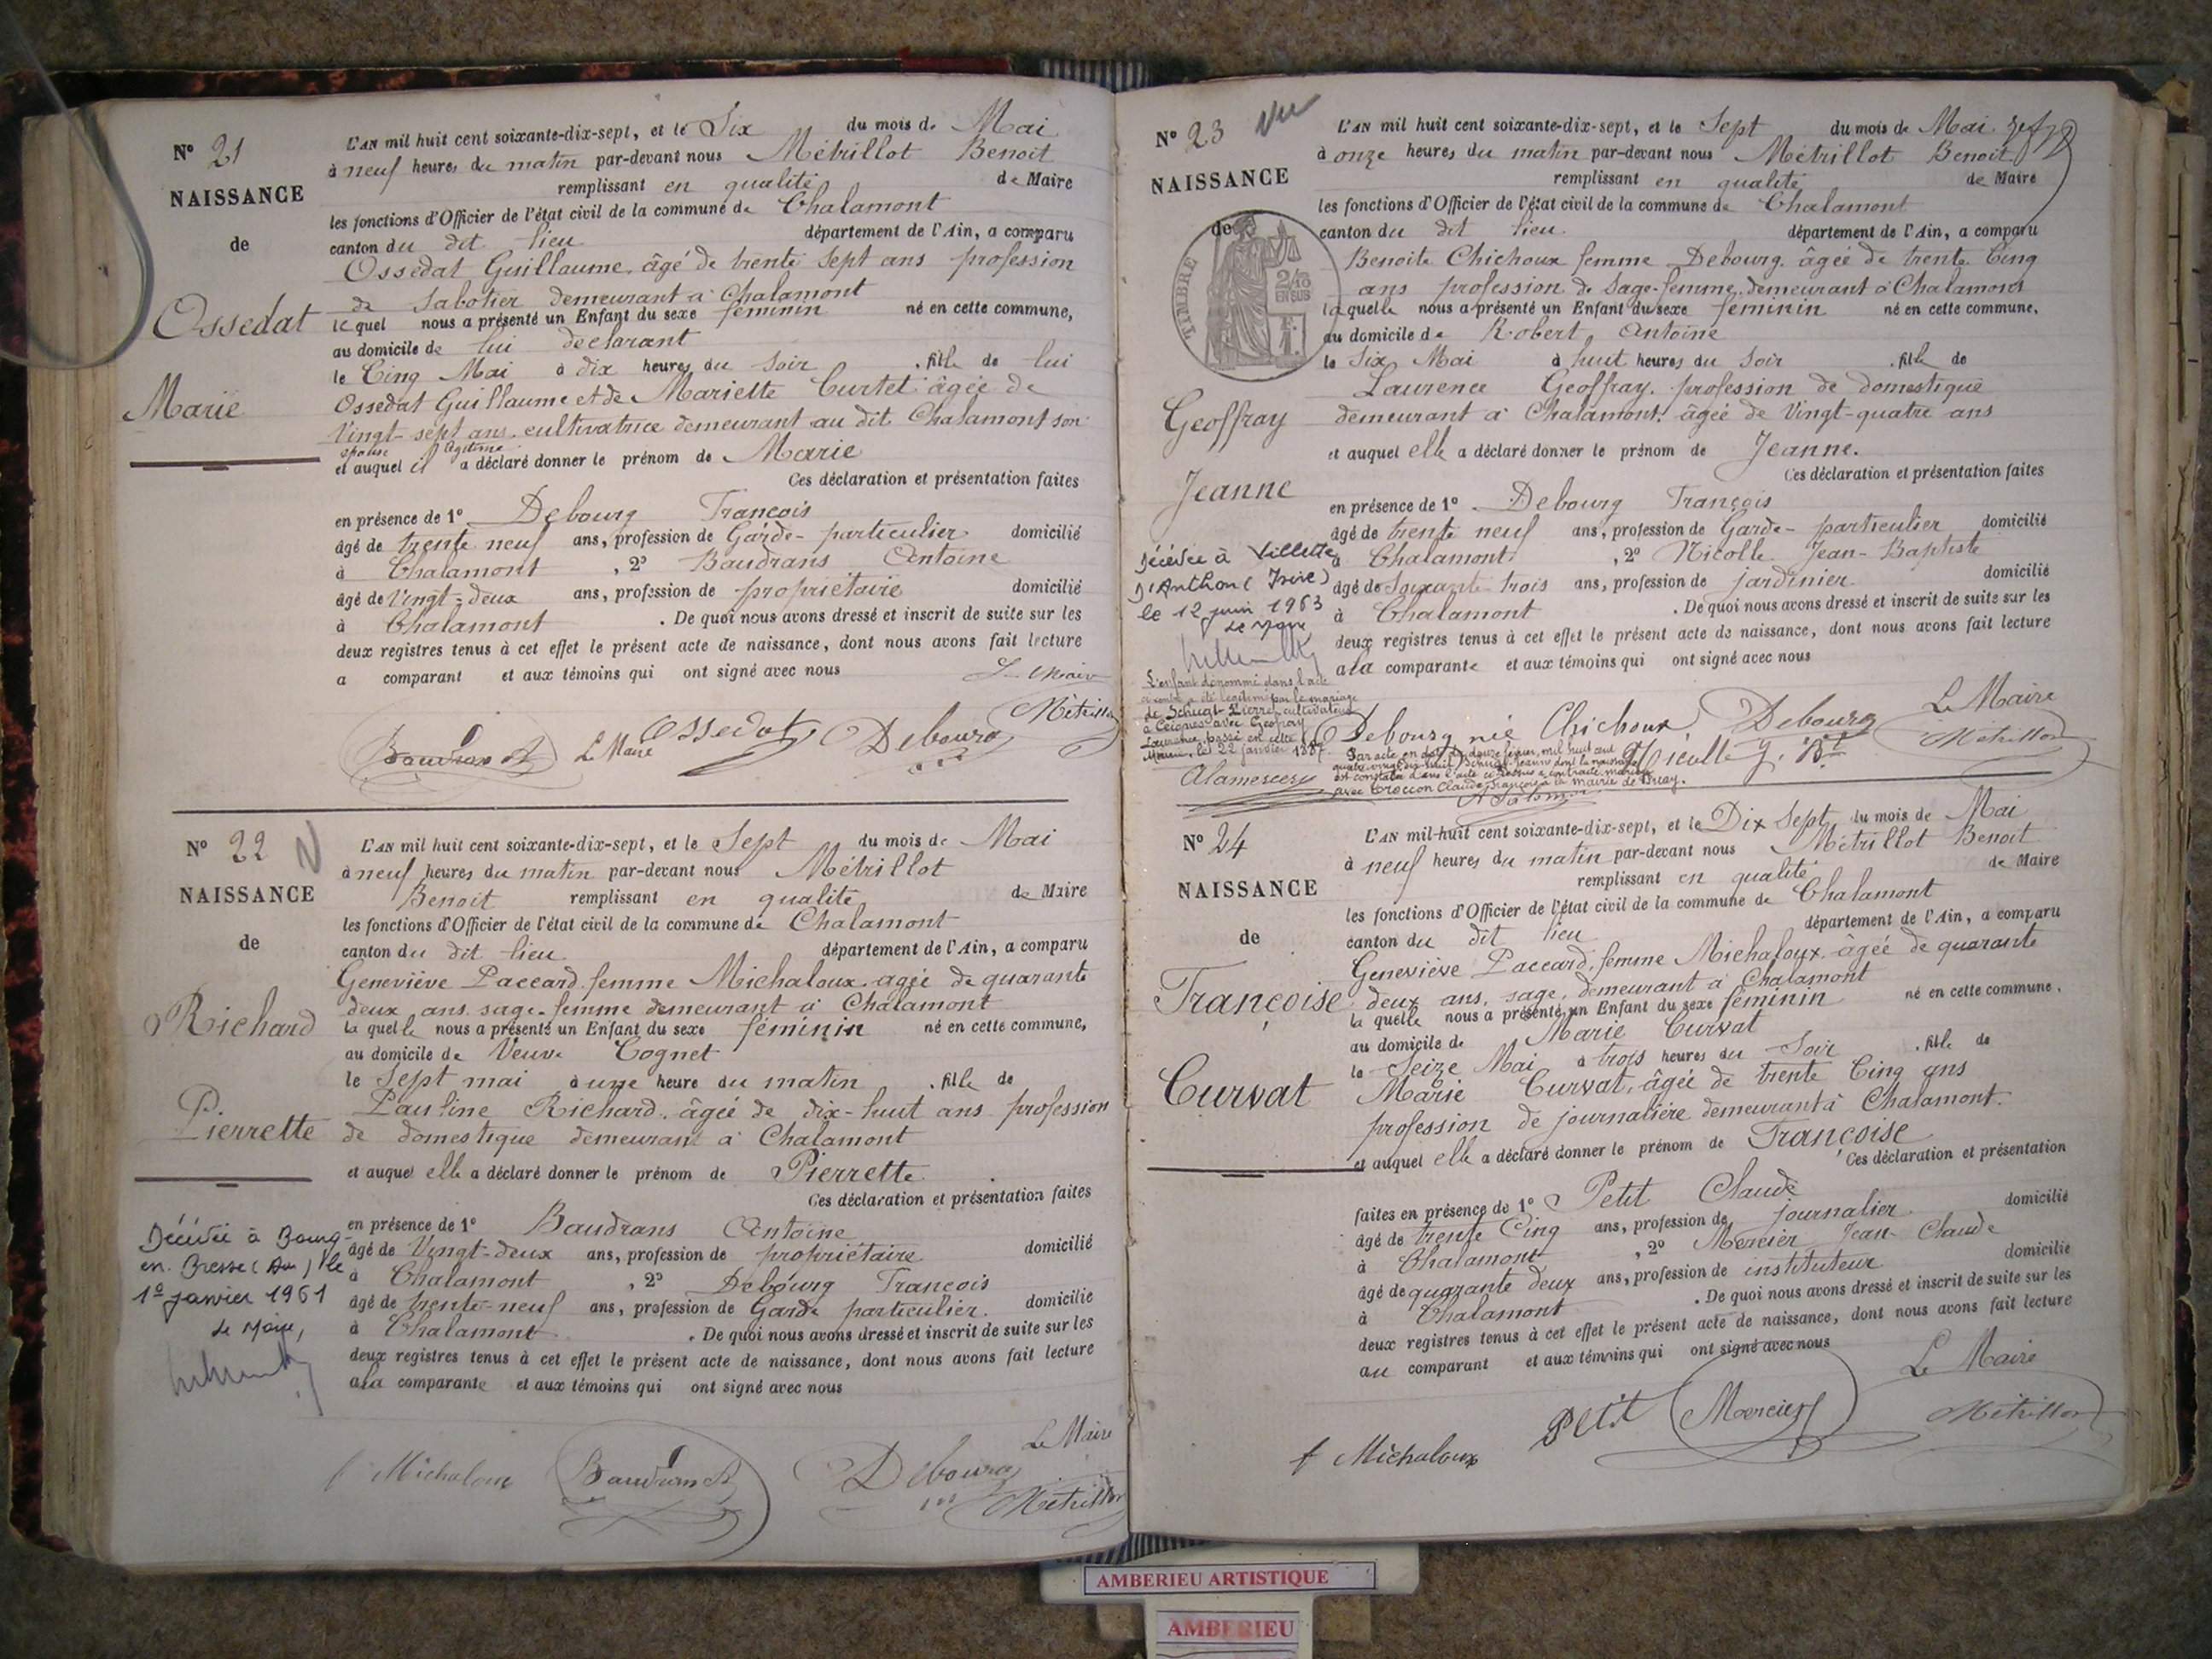 N° 21
NAISSANCE
de
Ossedat
Marie
L'AN mil huit cent soixante-dix-sept, et le Six du mois de Mai
à neuf heures du matin par-devant nous Métrillot Benoit
remplissant en qualité de Maire
les fonctions d'Officier de l'état civil de la commune de Chalamont
canton du dit lieu département de l'Ain, a comparu
Ossedat Guillaume, âgé de trente sept ans profession
de Sabotier demeurant à Chalamont
lequel nous a présenté un Enfant du sexe féminin né en cette commune,
au domicile de lui déclarant
le Cinq Mai à dix heures du soir . fille de lui
Ossedat Guillaume et de Mariette Curtet âgée de
Vingt-sept ans, cultivatrice demeurant au dit Chalamont son
épouse légitime
et auquel il a déclaré donner le prénom de Marie
Ces déclaration et présentation faites
en présence de 1° Debourg François
âgé de trente neuf ans, profession de Garde-particulier domicilié
à Chalamont , 2° Baudrans Antoine
âgé de Vingt-deux ans, profession de propriétaire domicilié
à Chalamont . De quoi nous avons dressé et inscrit de suite sur les
deux registres tenus à cet effet le présent acte de naissance, dont nous avons fait lecture
a comparant et aux témoins qui ont signé avec nous
Le Maire
Baudrans A Le Maire Ossedat Debourg Métrillot
N° 22
NAISSANCE
de
Richard
Pierrette
Décédée à Bourg-
en-Bresse (Ain) le
1° janvier 1961
Le Maire,
L'AN mil huit cent soixante-dix-sept, et le Sept du mois de Mai
à neuf heures du matin par-devant nous Métrillot
Benoit remplissant en qualité de Maire
les fonctions d'Officier de l'état civil de la commune de Chalamont
canton du dit lieu département de l'Ain, a comparu
Geneviève Paccard femme Michaloux agée de quarante
deux ans sage-femme demeurant à Chalamont
laquelle nous a présenté un Enfant du sexe féminin né en cette commune,
au domicile de Veuve Cognet
le Sept mai à une heure du matin . fille de
Pauline Richard, âgée de dix-huit ans profession
de domestique demeurant à Chalamont
et auquel elle a déclaré donner le prénom de Pierrette
Ces déclaration et présentation faites
en présence de 1° Baudrans Antoine
âgé de Vingt-deux ans, profession de propriétaire domicilié
à Chalamont , 2° Debourg François
âgé de trente-neuf ans, profession de Garde particulier. domicilié
à Chalamont . De quoi nous avons dressé et inscrit de suite sur les
deux registres tenus à cet effet le présent acte de naissance, dont nous avons fait lecture
a la comparante et aux témoins qui ont signé avec nous
Le Maire
f Michaloux Baudrans A Debourg Métrillot
N° 23 Vu
NAISSANCE
de
TIMBRE
2/10
EN SUS
1F.
Geoffray
Jeanne
Décédée à Villette
d'Anthon (Isère)
le 12 juin 1963
Le Maire
L'enfant dénommé dans l'acte
ci-contre a été légitimé par le mariage
de Schugt Pierre, cultivateur
à Ceignes avec Geofray
Laurence, passé en cette
Mairie le 22 janvier 1887
L'AN mil huit cent soixante-dix-sept, et le Sept du mois de Mai.
à onze heures du matin par-devant nous Métrillot Benoit
remplissant en qualité de Maire
les fonctions d'Officier de l'état civil de la commune de Chalamont
canton du dit lieu. département de l'Ain, a comparu
Benoite Chichoux femme Debourg. âgée de trente Cinq
ans profession de Sage-femme. demeurant à Chalamont
laquelle nous a présenté un Enfant du sexe féminin né en cette commune.
au domicile de Robert, Antoine
le Six Mai à huit heures du Soir . fille de
Laurence Geoffray. profession de domestique
demeurant à Chalamont. âgée de Vingt-quatre ans
et auquel elle a déclaré donner le prénom de Jeanne.
Ces déclaration et présentation faites
en présence de 1° Debourg François
âgé de trente neuf ans, profession de Garde-particulier domicilié
à Chalamont , 2° Nicolle Jean-Baptiste
âgé de Soixante trois ans, profession de jardinier domicilié
à Chalamont . De quoi nous avons dressé et inscrit de suite sur les
deux registres tenus à cet effet le présent acte de naissance, dont nous avons fait lecture
a la comparante et aux témoins qui ont signé avec nous
Le Maire
Debourg née Chichoux Debourg Métrillot
Nicolle J. Bt
Par acte en date du douze mil huit cent
quatre-vingt dix-huit Schugt Jeanne dont la naissance
est constatée dans l'acte ci-dessus a contracté mariage
avec Croccon Claude François à la mairie de Druay.
N° 24
NAISSANCE
de
Françoise
Curvat
L'AN mil-huit cent soixante-dix-sept, et le Dix Sept du mois de Mai
à neuf heures du matin par-devant nous Métrillot Benoit
remplissant en qualité de Maire
les fonctions d'Officier de l'état civil de la commune de Chalamont
canton du dit lieu département de l'Ain, a comparu
Geneviève Paccard, femme Michaloux. âgée de quarante
deux ans, sage, demeurant à Chalamont
la quelle nous a présenté un Enfant du sexe féminin né en cette commune.
au domicile de Marie Curvat
le Seize Mai à trois heures du Soir . fille de
Marie Curvat, âgée de trente Cinq ans
profession de journalière demeurant à Chalamont.
et auquel elle a déclaré donner le prénom de Françoise
Ces déclaration et présentation
faites en présence de 1° Petit Claude
âgé de trente Cinq ans, profession de journalier domicilié
à Chalamont , 2° Mercier Jean-Claude
âgé de quarante deux ans, profession de instituteur domicilié
à Chalamont . De quoi nous avons dressé et inscrit de suite sur les
deux registres tenus à cet effet le présent acte de naissance, dont nous avons fait lecture
au comparant et aux témoins qui ont signé avec nous
Le Maire
f Michaloux Petit Mercier Métrillot
AMBERIEU ARTISTIQUE
AMBERIEU